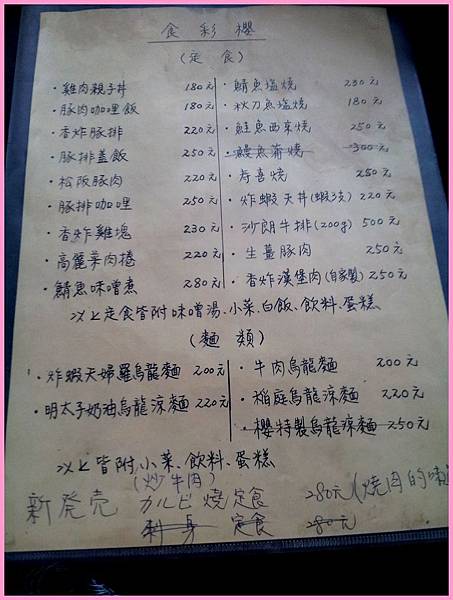 食彩櫻
(定食)
・雞肉親子丼 180元
・豚肉咖哩飯 180元
・香炸豚排 220元
・豚排蓋飯 250元
・松阪豚肉 220元
・豚排咖哩 250元
・香炸雞塊 230元
・高麗菜肉捲 220元
・鯖魚味噌煮 280元
・鯖魚塩燒 230元
・秋刀魚塩燒 180元
・鮭魚西京燒 250元
・鰻魚蒲燒 300元
・寿喜燒 250元
・炸蝦天丼(蝦3支) 220元
・沙朗牛排(200g) 500元
・生薑豚肉 250元
・香炸漢堡肉(自家製) 250元
以上定食皆附味噌湯、小菜、白飯、飲料、蛋糕
(麵類)
・炸蝦天婦羅烏龍麵 200元
・明太子奶油烏龍涼麵 220元
・牛肉烏龍麵 200元
・稲庭烏龍涼麵 220元
・櫻特製烏龍涼麵 250元
以上皆附小菜、飲料、蛋糕
(炒牛肉)
新発売 カルビ燒定食 280元(燒肉的味
刺身 定食 280元